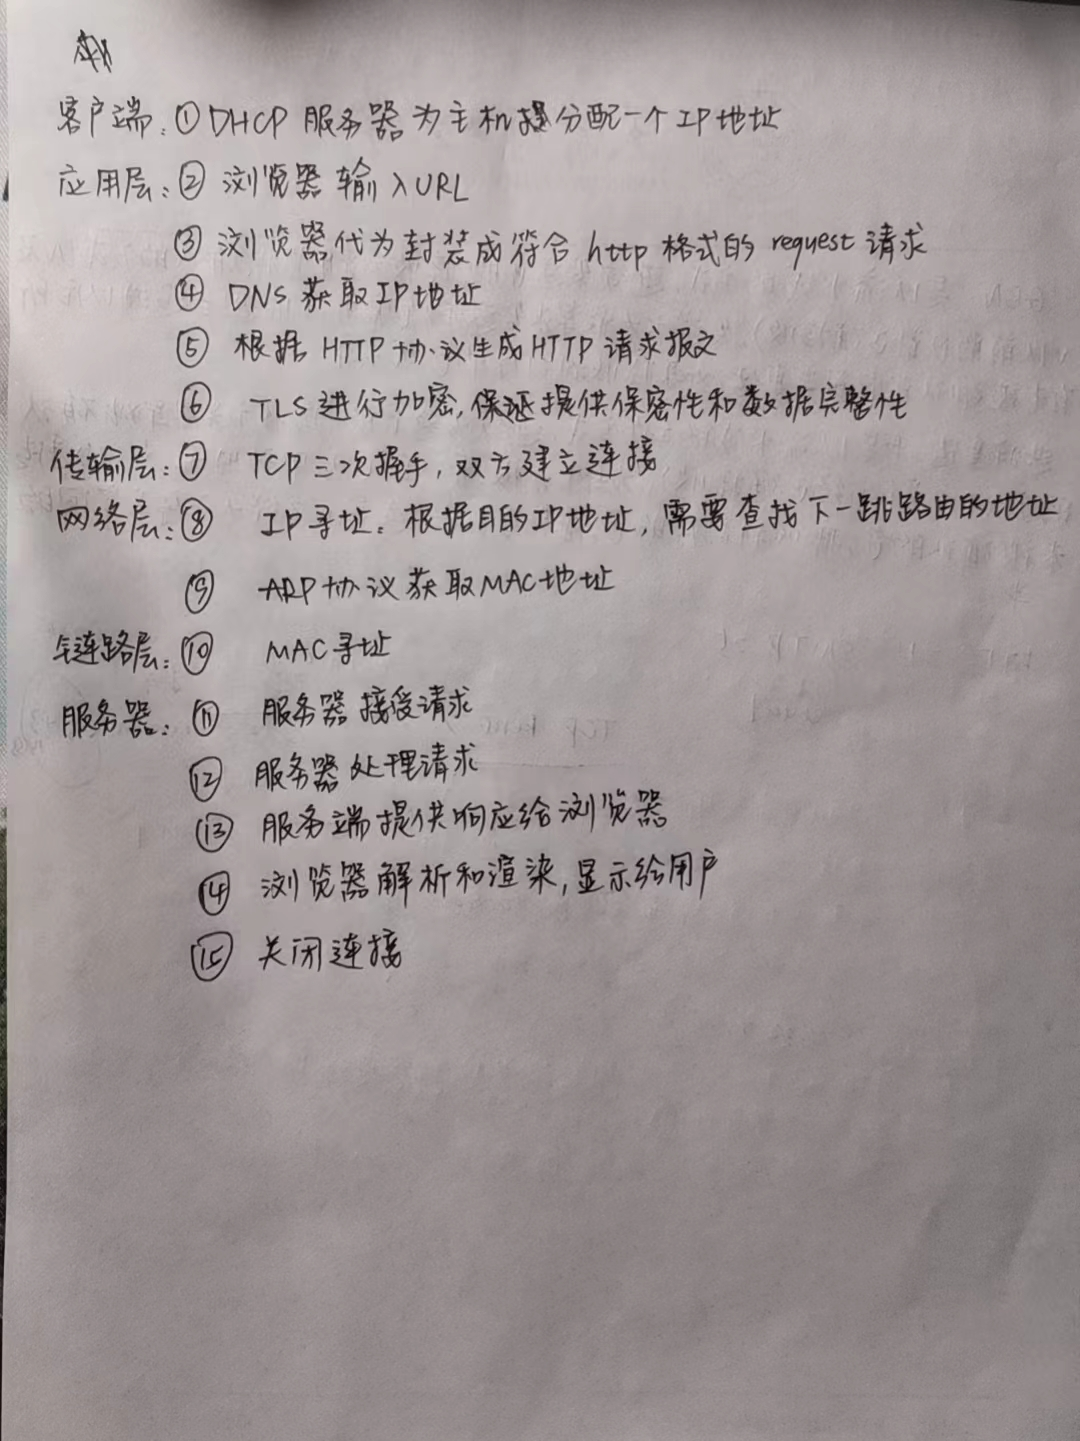 客户端: ① DHCP 服务器为主机提分配一个IP地址
应用层: ② 浏览器 输入URL
③ 浏览器代为封装成符合 http 格式的 request 请求
④ DNS 获取IP地址
⑤ 根据 HTTP 协议生成HTTP 请求报文
⑥ TLS 进行加密, 保证提供保密性和数据完整性
传输层: ⑦ TCP 三次握手, 双方建立连接
网络层: ⑧ IP寻址: 根据目的IP地址, 需要查找下一跳路由的地址
⑨ ARP协议获取MAC地址
链路层: ⑩ MAC寻址
服务器: ⑪ 服务器接受请求
⑫ 服务器处理请求
⑬ 服务端提供响应给浏览器
⑭ 浏览器解析和渲染, 显示给用户
⑮ 关闭连接